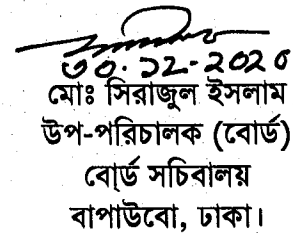 ৩০.১২-২০২০
মোঃ সিরাজুল ইসলাম
উপ-পরিচালক (বোর্ড)
বোর্ড সচিবালয়
বাপাউবো, ঢাকা।